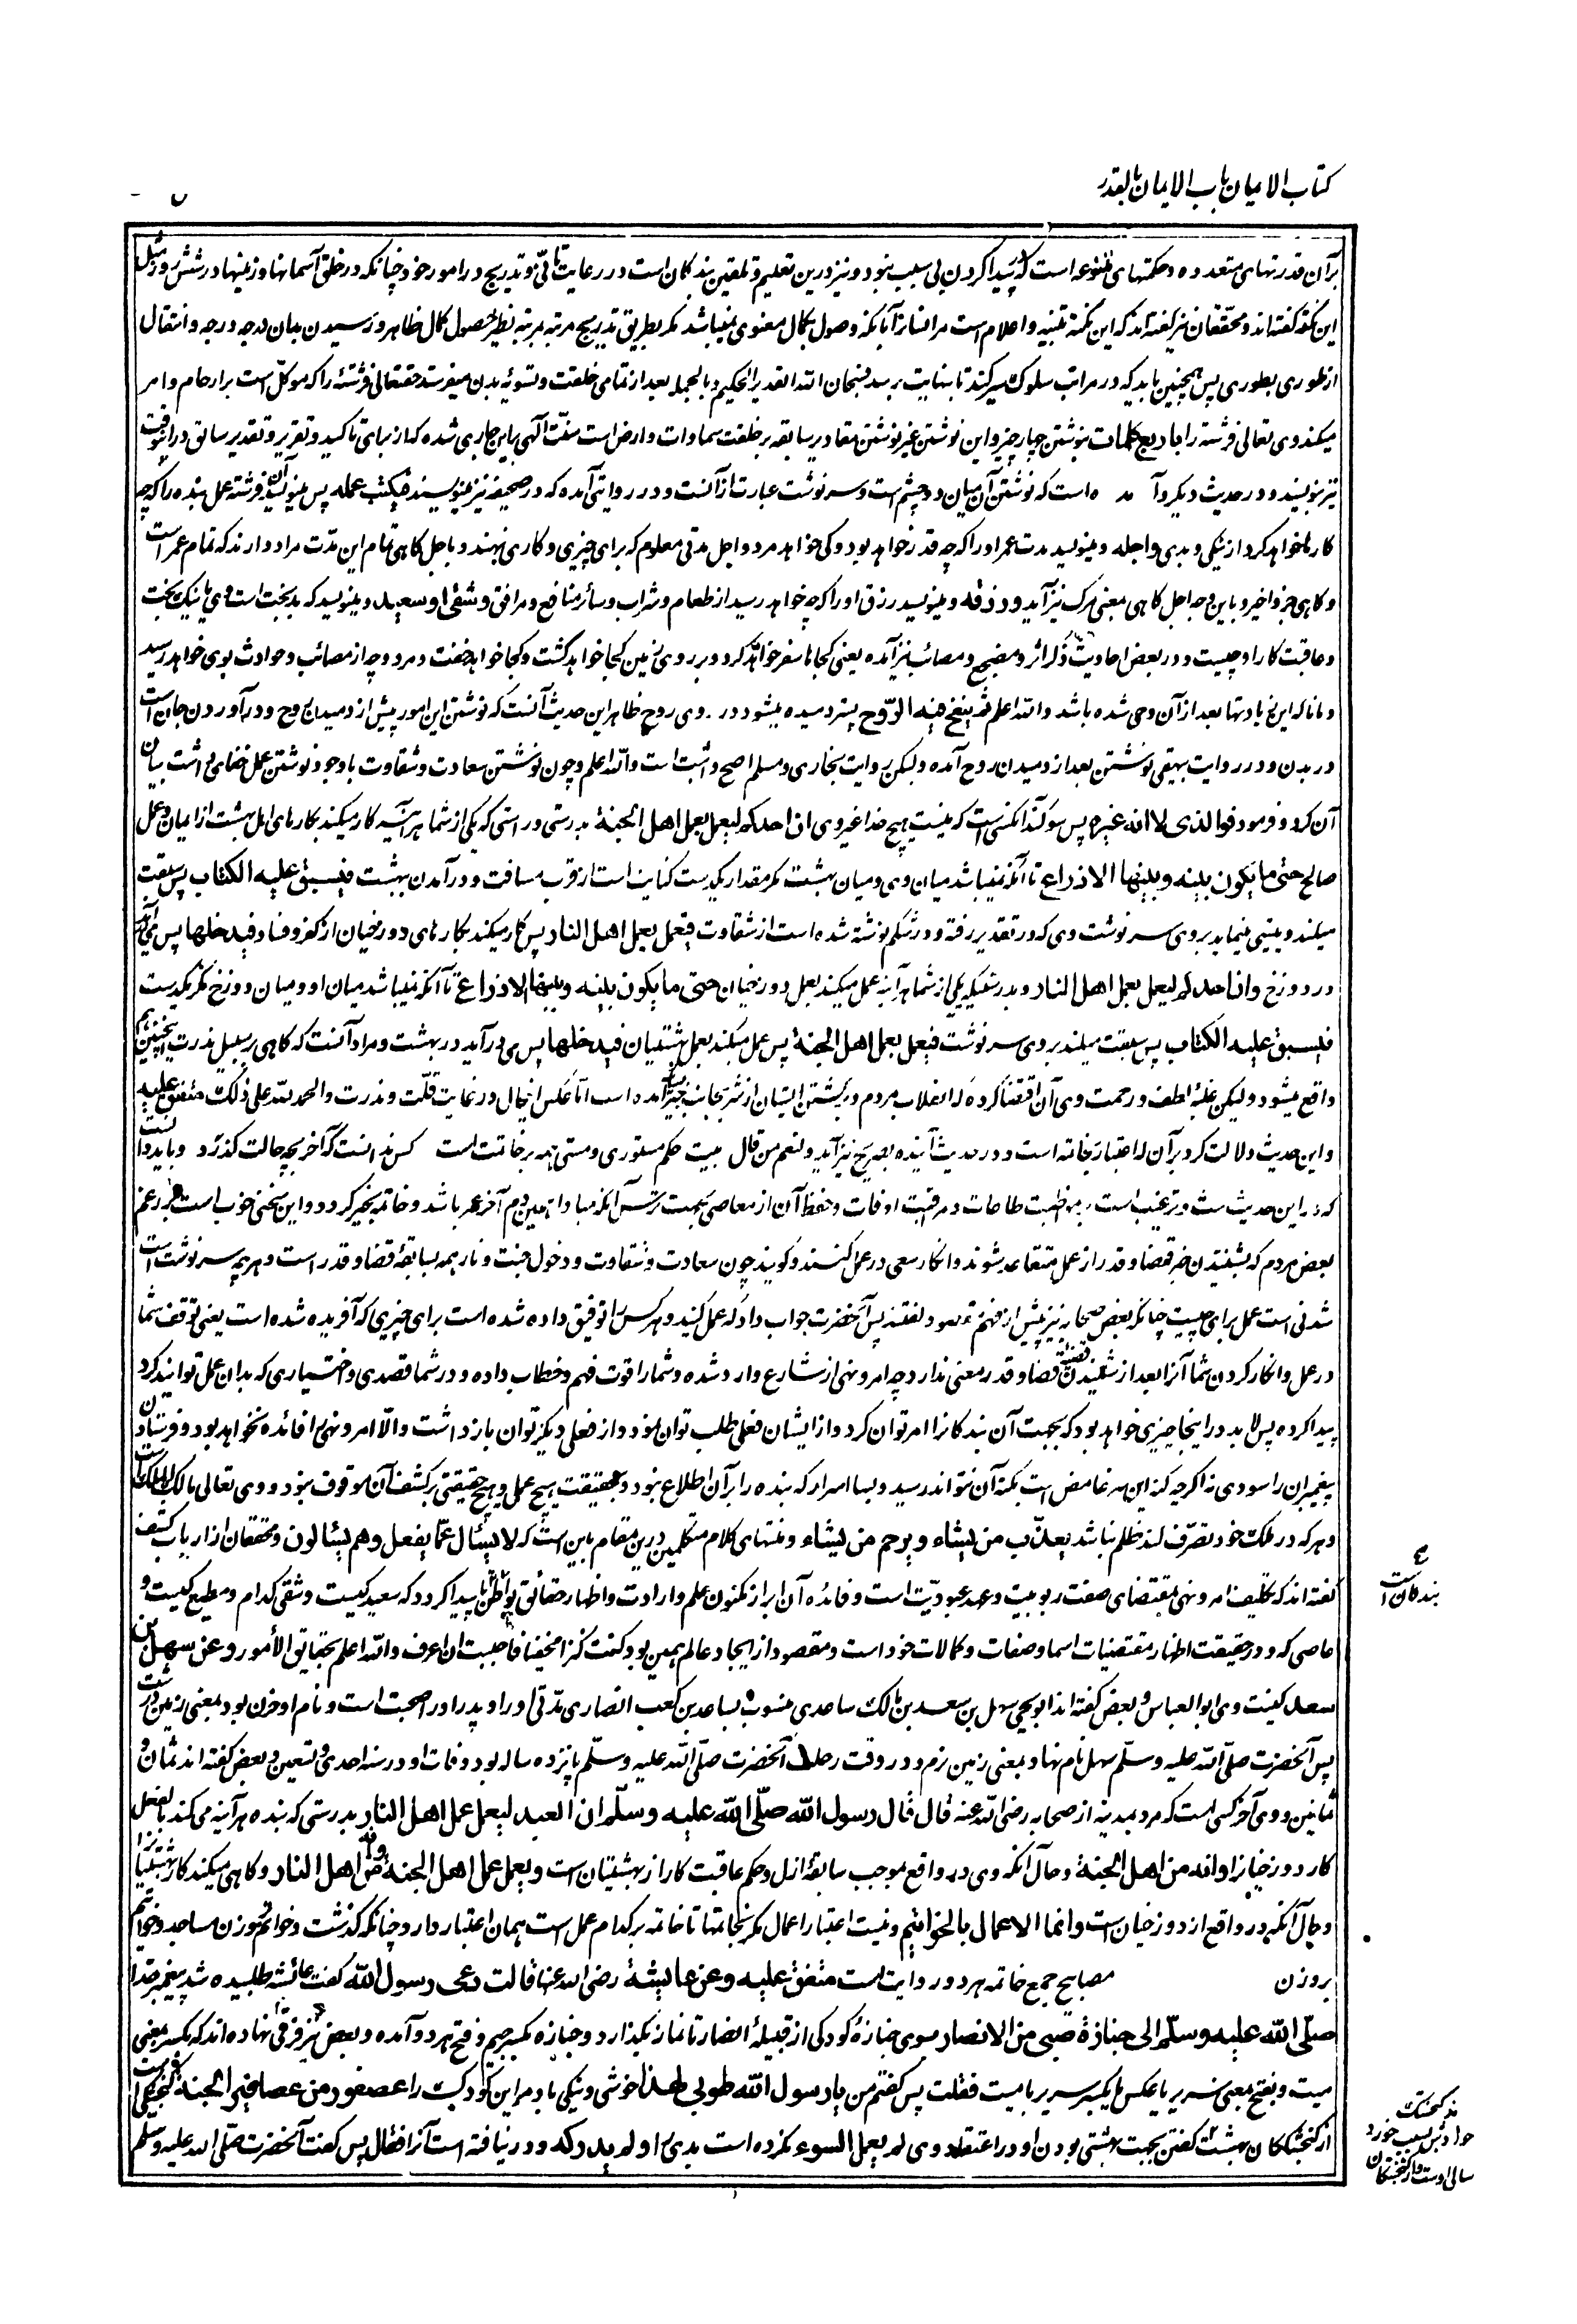 کتاب الایمان باب الایمان بالقدر
بر آن قدرتهای متعدده و حکمتهای متنوعه است که پیدا کردن بی سبب نبود و نیز درین تعلیم و تلقین بندگان است در رعایت تأنّی و تدریج در امور خود چنانکه در خلق آسمانها و زمینها در شش روز مثل
این نکته گفته‌اند و محققان نیز گفته‌اند که این نکته تنبیه و اعلام است مر انسان را بآنکه وصول بکمال معنوی نمیباشد مگر بطریق تدریج مرتبه بمرتبه نظیر حصول کمال ظاهر و رسیدن بیان درجه درجه و انتقال
از طوری بطوری پس همچنین باید که در مراتب سلوک سیر کند تا بنهایت برسد فسبحان الله القدیر الحکیم و بالجمله بعد از تمامی خلقت و تسویه بدن میفرستد حقتعالی فرشته را که موکل است بر ارحام و امر
میکند وی تعالی فرشته را باربع کلمات بنوشتن چهار چیز و این نوشتن غیر نوشتن مقادیر سابقه بر خلقت سماوات و ارض است سنّت الهی باین جاری شده که از برای تاکید و تقریر و تقدیر سابق درینوقت
نیز بنویسند و در حدیث دیگر وآمده است که نوشتن آن میان دو چشم است و سرنوشت عبارت از آنست و در روایتی آمده که در صحیفه نیز مینویسند فیکتب عمله پس مینویسد آن فرشته عمل بنده را که چه
کارها خواهد کرد از نیکی و بدی واجله و مینویسد مدت عمر او را که چه قدر خواهد بود و کی خواهد مرد و اجل مدتی معلوم که برای چیزی و کاری نهند و باجل گاهی تمام این مدّت مراد دارند که تمام عمر است
و گاهی جزو اخیر و باین وجه اجل گاهی معنی مرگ نیز آید ورزقه و مینویسد رزق او را که چه خواهد رسید از طعام و شراب و سائر منافع و مرافق وشقی او سعید و مینویسد که بدبخت است وی یا نیک بخت
و عاقبت کار او چیست و در بعض احادیث ذکر اثر و مضجع و مصائب نیز آمده یعنی کجاها سفر خواهد کرد و بر روی زمین کجا خواهد گشت و کجا خواهد خفت و مرد و چه از مصائب و حوادث بوی خواهد رسید
و مانا که این زیادتها بعد از آن وحی شده باشد والله اعلم ثم ینفخ فیه الرّوح پستر دمیده میشود در وی روح ظاهر این حدیث آنست که نوشتن این امور پیش از دمیدن روح و در آوردن جان است
در بدن و در روایت بیهقی نوشتن بعد از دمیدن روح آمده ولیکن روایت بخاری و مسلم اصح و اثبت است والله اعلم و چون نوشتن سعادت و شقاوت با وجود نوشتن عمل خفای داشت بیان
آن کرد و فرمود فوالذی لا اله غیره پس سوگند آنکسی است که نیست هیچ خدا غیر وی ان احدکم لیعمل بعمل اهل الجنة بدرستی و راستی که یکی از شما هر آینه کار میکند بکارهای اهل بهشت از ایمان و عمل
صالح حتی ما یکون بینه وبینها الا ذراع تا آنکه نمیباشد میان وی و میان بهشت مگر مقدار یکدست کنایت است از قرب مسافت و در آمدن بهشت فیسبق علیه الکتاب پس سبقت
میکند و پیشی مینماید بر وی سرنوشت وی که در تقدیر رفته و در شکم نوشته شده است از شقاوت فیعمل بعمل اهل النار پس کار میکند بکارهای دوزخیان از کفر و فساد فیدخلها پس می در آید
در دوزخ وان احدکم لیعمل بعمل اهل النار و بدرستیکه یکی از شما هر آینه عمل میکند بعمل دوزخیان حتی ما یکون بینه وبینها الا ذراع تا آنکه نمیباشد میان او و میان دوزخ مگر یکدست
فیسبق علیه الکتاب پس سبقت میکند بر وی سرنوشت فیعمل بعمل اهل الجنة پس عمل میکند بعمل بهشتیان فیدخلها پس می در آید در بهشت و مراد آنست که گاهی بر سبیل ندرت اینچنین هم
واقع میشود ولیکن غلبه لطف و رحمت وی آن اقتضا کرده که انقلاب مردم و برگشتن ایشان از شر بجانب خیر بسیار آمده است اما عکس اینحال در غایت قلّت و ندرت والحمد لله علی ذلک متفق علیه
و این حدیث دلالت کرد بر آن که اعتبار خاتمه است و در حدیث آینده بصریح نیز آید و لنعم من قال بیت حکم مستوری و مستی همه بر خاتمت است کس ندانست که آخر بچه حالت گذرد و باید دانست
که در این حدیث حث و ترغیب است بمواظبت طاعات و مراقبت اوقات و حفظ آن از معاصی بجهت ترس آنکه مبادا همین دم آخر عمر باشد و خاتمه بخیر گردد و این سخنی خوب است بر رغم
بعض مردم که بشنیدن خبر قضا و قدر از عمل متقاعد شوند و انکار سعی در عمل کنند و گویند چون سعادت و شقاوت و دخول جنت و نار همه بسابقه قضا و قدر است و هر چه سرنوشت است
شدنی است عمل برای چیست چنانکه بعض صحابه نیز پیش از فهم مقصود گفتند پس آنحضرت جواب داد که عمل کنید و هر کس را توفیق داده شده است برای چیزی که آفریده شده است یعنی توقف شما
در عمل و انکار کردن شما آنرا بعد از شنیدن قضیه قضا و قدر معنی ندارد چه امر و نهی از شارع وارد شده و شما را قوت فهم و خطاب داده و در شما قصدی و اختیاری که بدان عمل توانید کرد
پیدا کرده پس لابد در اینجا چیزی خواهد بود که بجهت آن بندگانرا امر توان کرد و از ایشان فعلی طلب توان نمود و از فعلی دیگر توان باز داشت والّا امر و نهی را فائده نخواهد بود و فرستادن
پیغمبران را سودی نه اگر چه کنه این سر غامض است بکنه آن نتواند رسید و بسا اسرار که بنده را بر آن اطلاع نبود و بحقیقت هیچ عملی و هیچ حقیقتی بر کشف آن موقوف نبود و وی تعالی مالک الملک است
و هر که در ملک خود تصرّف کند ظلم نباشد یعذّب من یشاء ویرحم من یشاء و منتهای کلام متکلمین درین مقام باین است که لا یسئل عمّا یفعل وهم یسئلون و محققان از ارباب کشف
گفته‌اند که تکلیف امر و نهی مقتضای صفت ربوبیت و عهد عبودیّت است و فائده آن ابراز مکنون علم و ارادت و اظهار حقائق بواطن تا پیدا گردد که سعید کیست و شقی کدام و مطیع کیست و
عاصی که و در حقیقت اظهار مقتضیات اسما و صفات و کمالات خود است و مقصود از ایجاد عالم همین بود کنت کنزا مخفیا فاحببت ان اعرف والله اعلم بحقایق الامور وعن سهل بن
سعد کنیت وی ابو العباس و بعض گفته‌اند ابو یحیی سهل بن سعد بن مالک ساعدی منسوب بساعد بن کعب انصاری مدّنی او را و پدر او را صحبت است و نام او حزن بود بمعنی زمین درشت
پس آنحضرت صلّی الله علیه وسلّم سهل نام نهاد بمعنی زمین نرم و در وقت رحلت آنحضرت صلّی الله علیه وسلّم پانزده ساله بود وفات او در سنه احدی و تسعین و بعض گفته‌اند ثمان و
ثمانین و وی آخر کسی است که مرد بمدینه از صحابه رضی الله عنه قال قال رسول الله صلّی الله علیه وسلّم ان العبد لیعمل عمل اهل النار بدرستی که بنده هر آینه می کند بفعل
کار دوزخیانرا وانه من اهل الجنة و حال آنکه وی در واقع بموجب سابقه ازل و حکم عاقبت کار از بهشتیان است ویعمل عمل اهل الجنة وانه من اهل النار و گاهی میکند کار بهشتیانرا
و حال آنکه در واقع از دوزخیان است وانما الاعمال بالخواتیم و نیست اعتبار اعمال مگر بخاتمتها تا خاتمه بر کدام عمل است همان اعتبار دارد چنانکه گذشت و خواتم بوزن مساجد و خواتیم
بروزن مصابیح جمع خاتمه هر دو روایت است متفق علیه وعن عایشة رضی الله عنها قالت دعی رسول الله گفت عائشه طلبیده شد پیغمبر خدا
صلّی الله علیه وسلّم الی جنازة صبی من الانصار سوی جنازهٔ کودکی از قبیلهٔ انصار تا نماز بگذارد و جنازه بکسر جیم و فتح هر دو آمده و بعض نیز فرقی نهاده‌اند که بکسر بمعنی
میت و بفتح بمعنی سریر یا عکس یا بکسر سریر با میت فقلت پس گفتم من یا رسول الله طوبی لهذا خوشی و نیکی باد مر این کودک را عصفور من عصافیر الجنة گنجشکی است
از گنجشکان بهشت گفتن بجهت بهشتی بودن او در اعتقاد وی لم یعمل السوء نکرده است بدی را ولم یدرکه و در نیافته است آنرا فقال پس گفت آنحضرت صلّی الله علیه وسلّم
بندگان است